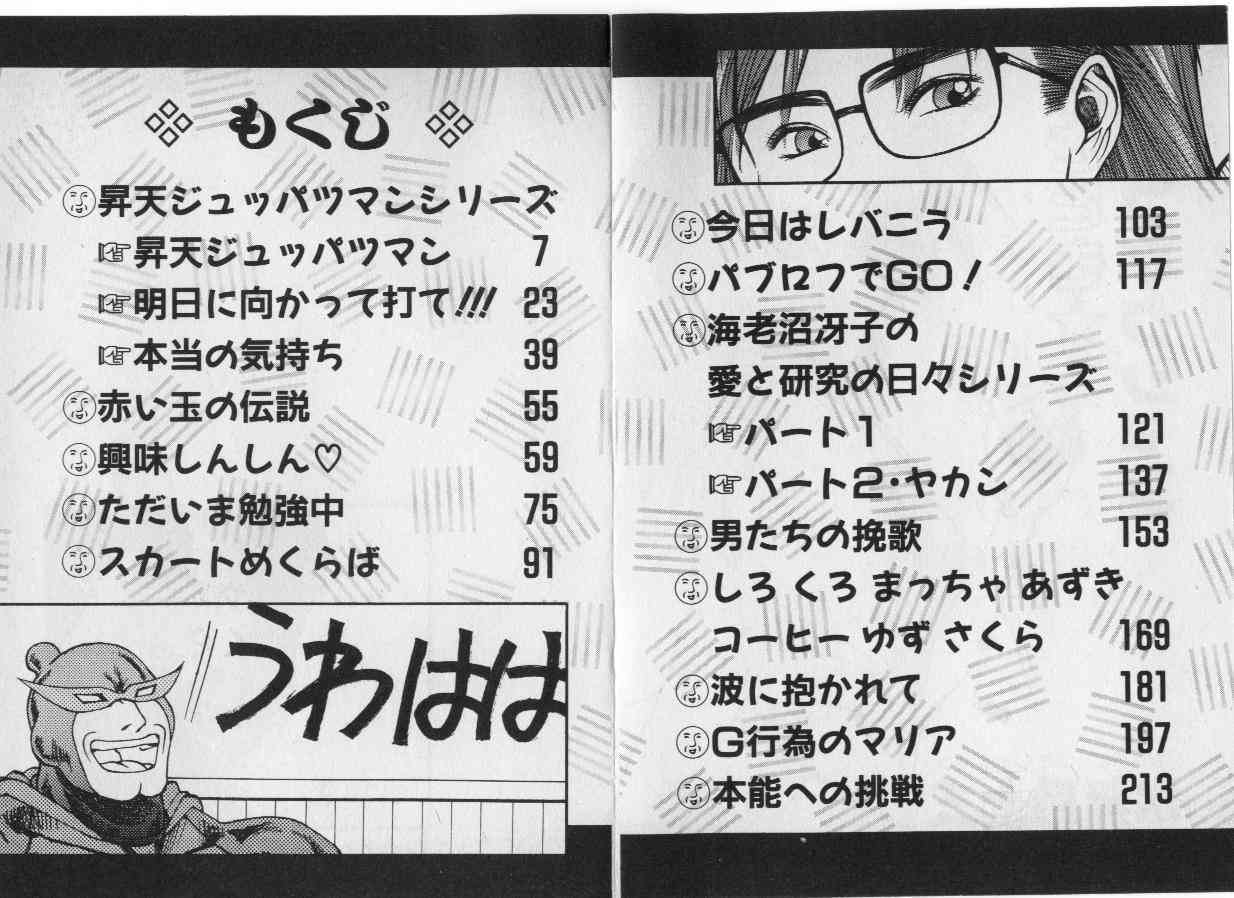 もくじ
昇天ジュッパツマンシリーズ
昇天ジュッパツマン 7
明日に向かって打て!!! 23
本当の気持ち 39
赤い玉の伝説 55
興味しんしん♡ 59
ただいま勉強中 75
スカートめくらば 91
うわはは
今日はレバニラ 103
パブロフでGO! 117
海老沼冴子の
愛と研究の日々シリーズ
パート1 121
パート2・ヤカン 137
男たちの挽歌 153
しろ くろ まっちゃ あずき
コーヒー ゆず さくら 169
波に抱かれて 181
G行為のマリア 197
本能への挑戦 213